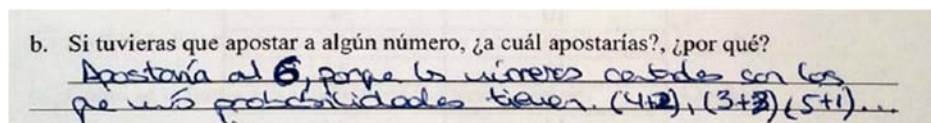 b. Si tuvieras que apostar a algún número, ¿a cuál apostarías?, ¿por qué?
Apostaría al 6, porque los números centrales son los
que más probabilidades tienen. (4+2), (3+3) (5+1)...